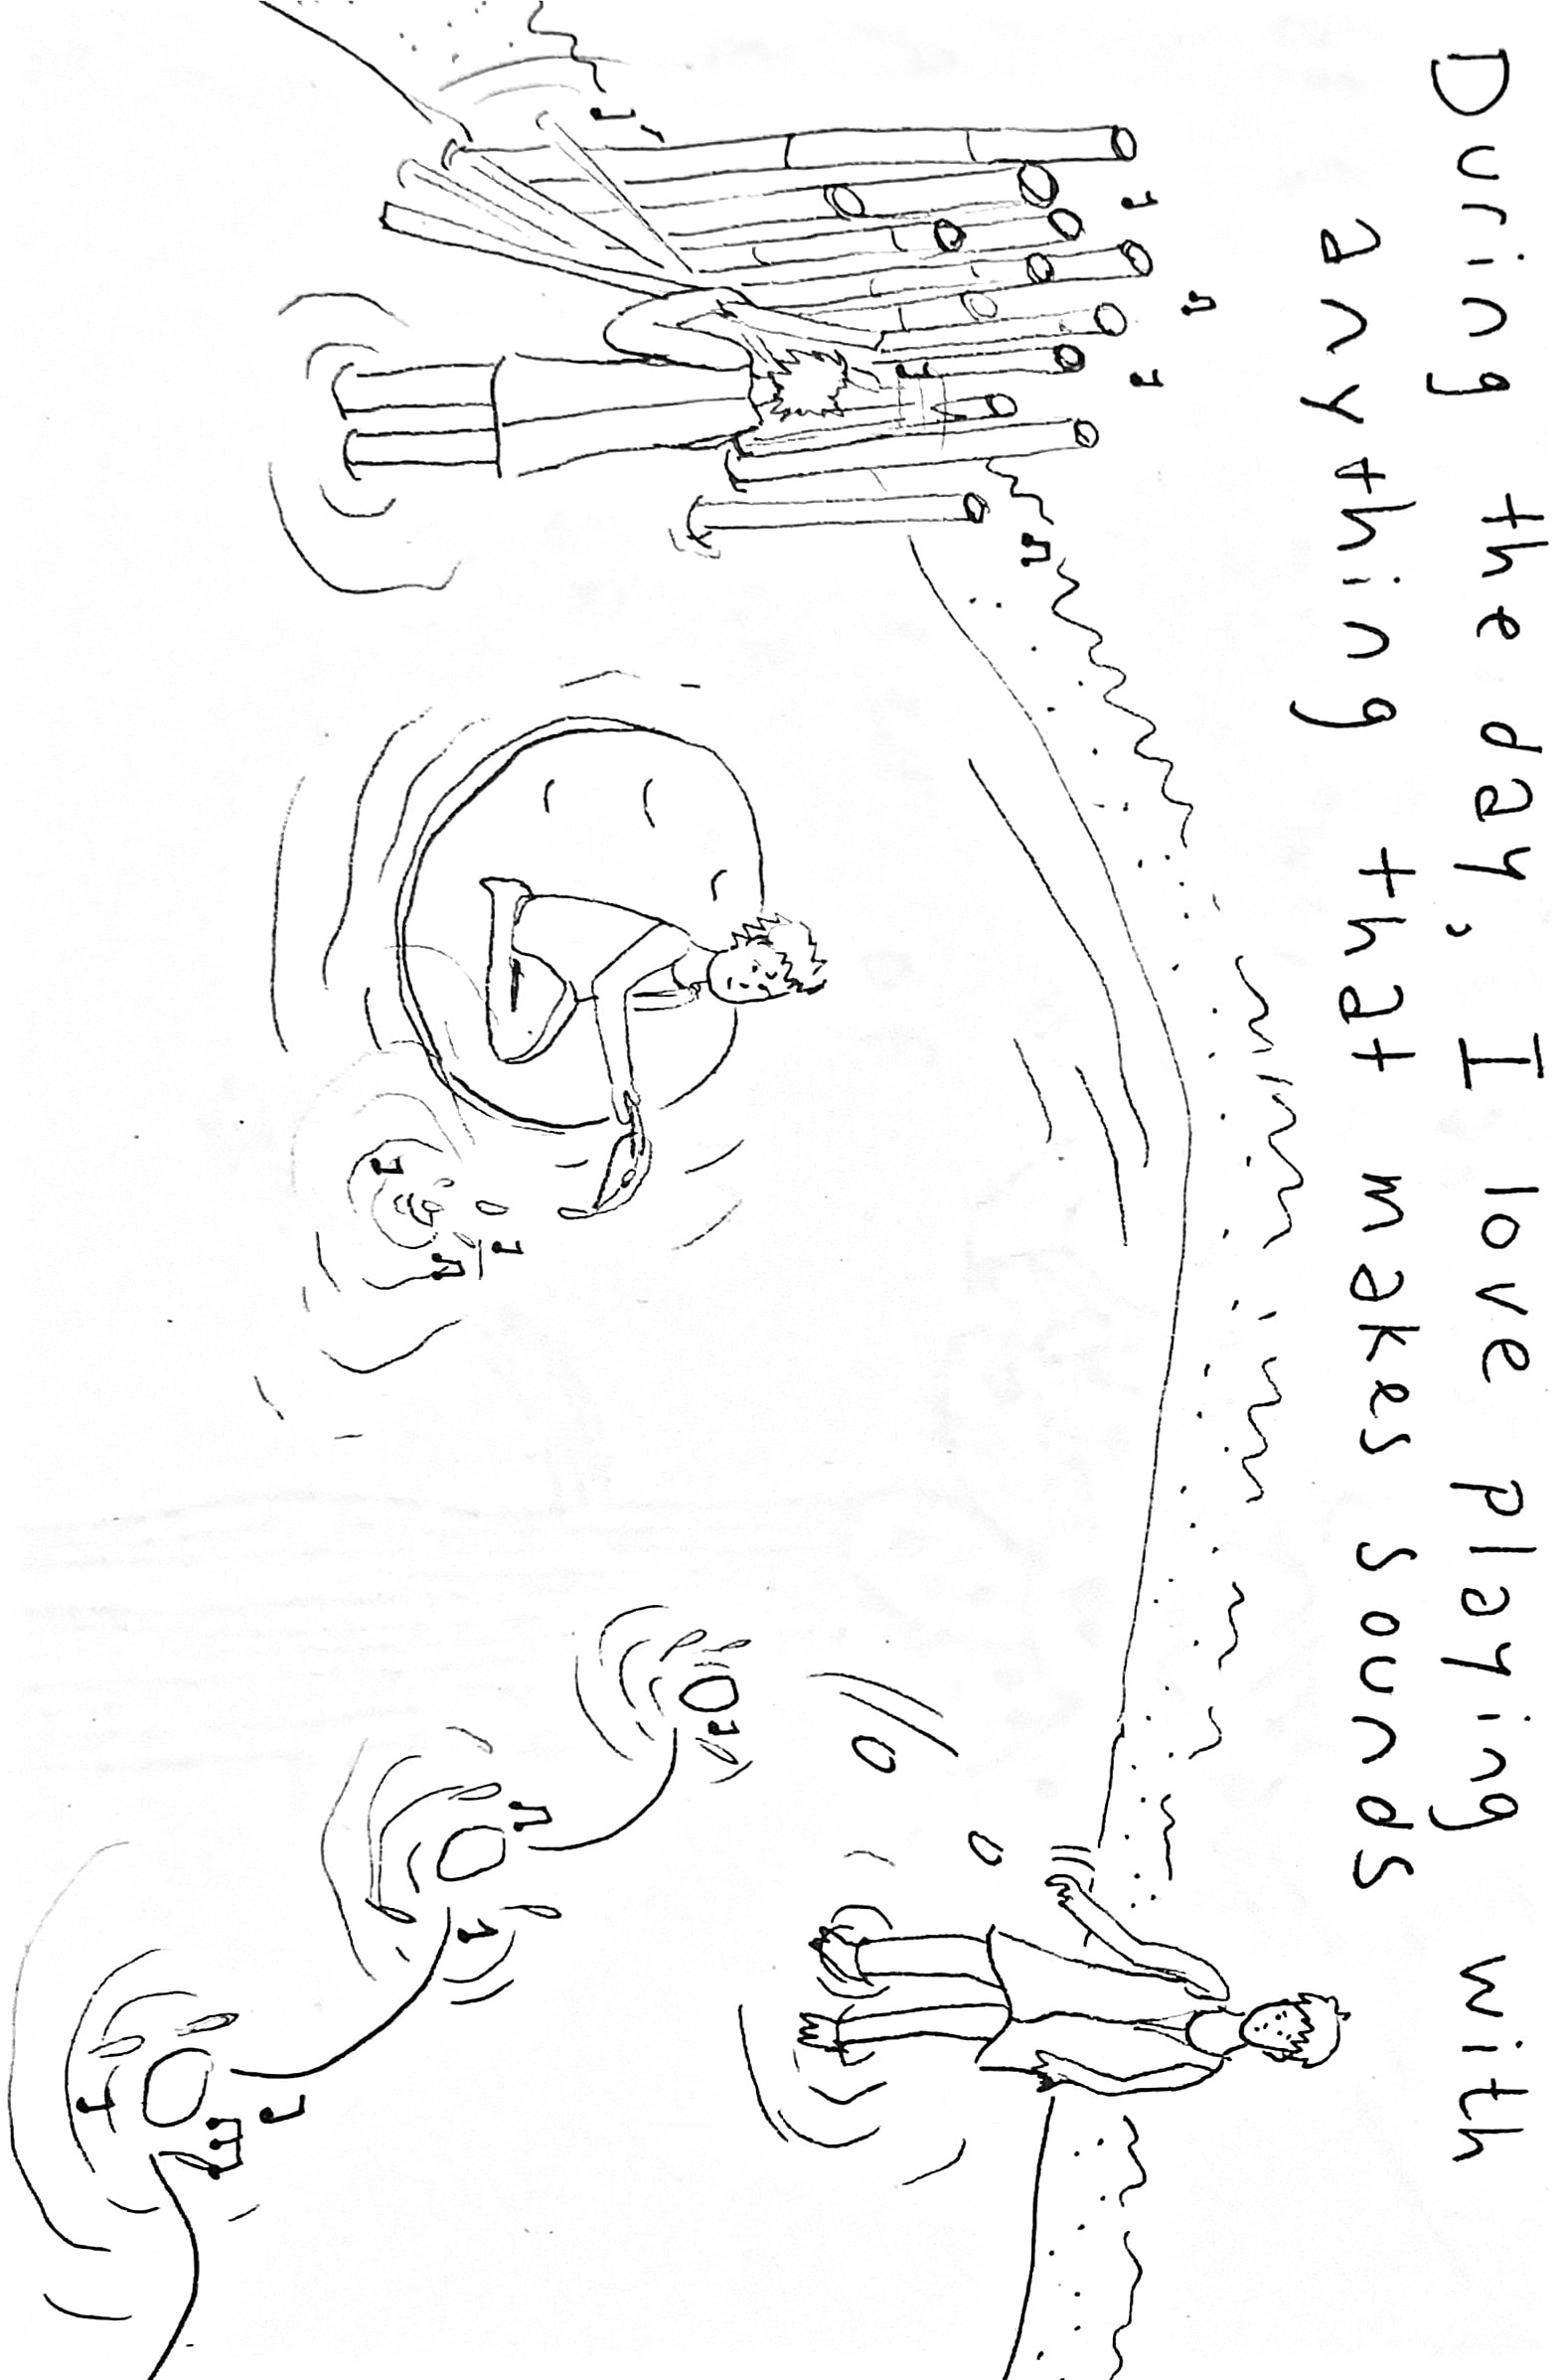 During the day, I love playing with
anything that makes sounds